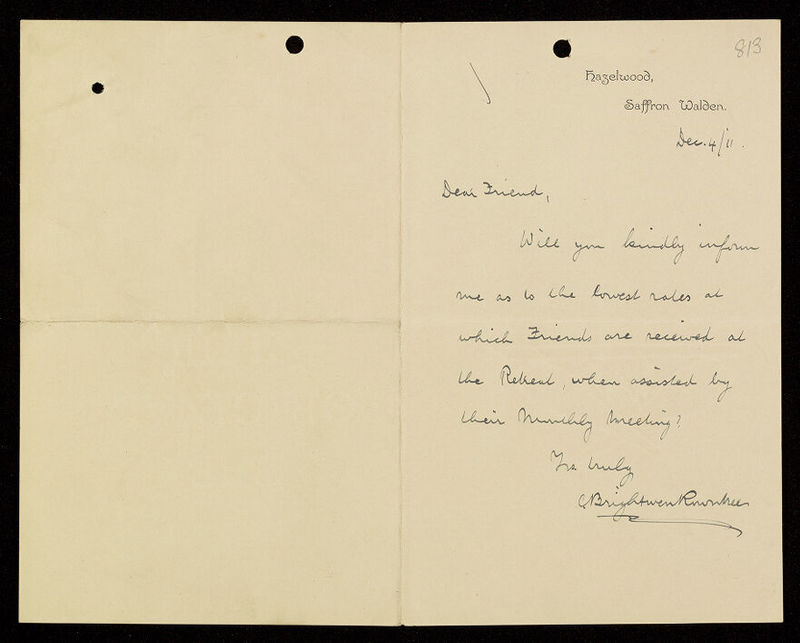 813
Hazelwood,
Saffron Walden.
Dec. 4/11.
Dear Friend,
Will you kindly inform
me as to the lowest rates at
which Friends are received at
the Retreat, when assisted by
their Monthly Meeting?
Yrs truly
C. Brightwen Rowntree